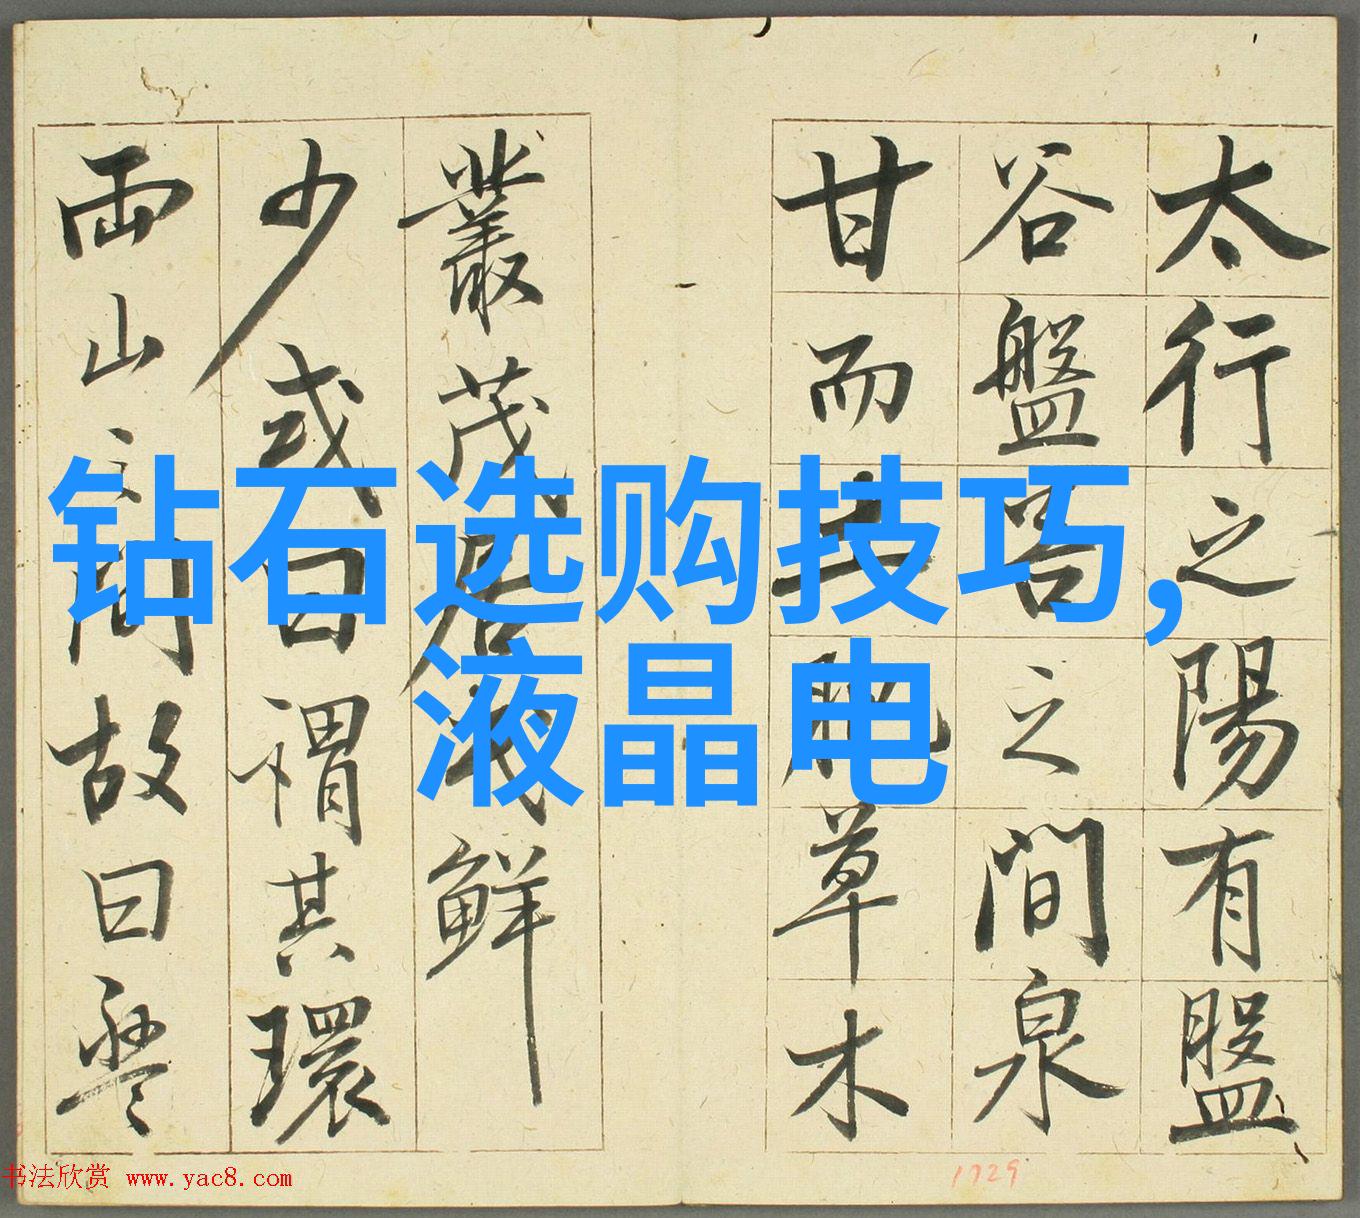 钻石选购技巧,
液晶电
太行之陽有盤
谷盤谷之間泉
甘而土肥草木
叢茂居民鮮
少或曰謂其環
兩山之間故曰盤
书法欣赏 www.yac8.com
1729